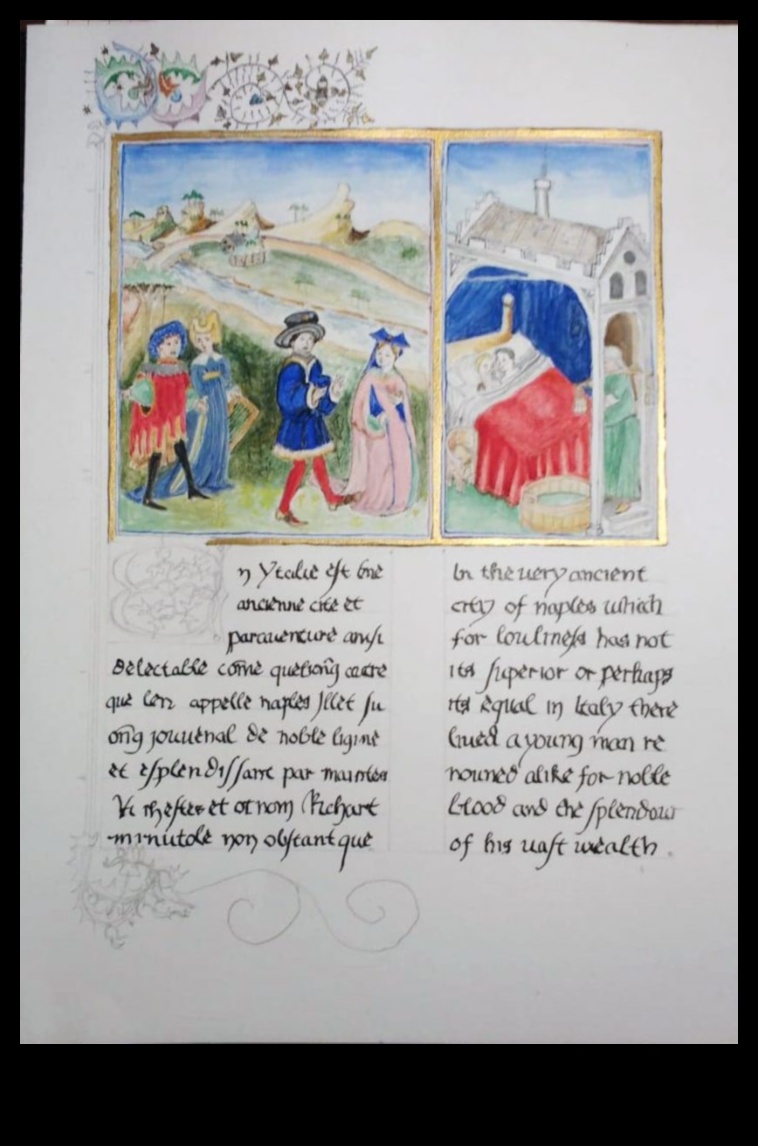 n Ytalie est une
ancienne cite et
paraventure ausi
delectable come quelꝯng autre
que len appelle naples Illet fu
ong jouvenal de noble ligme
et esplendissant par maintes
et ot nom Richart
minutolo non obstant que
In the very ancient
city of naples which
for louliness has not
its superior or perhaps
its equal in Italy there
lived a young man re
nouned alike for noble
blood and the splendour
of his vast wealth .